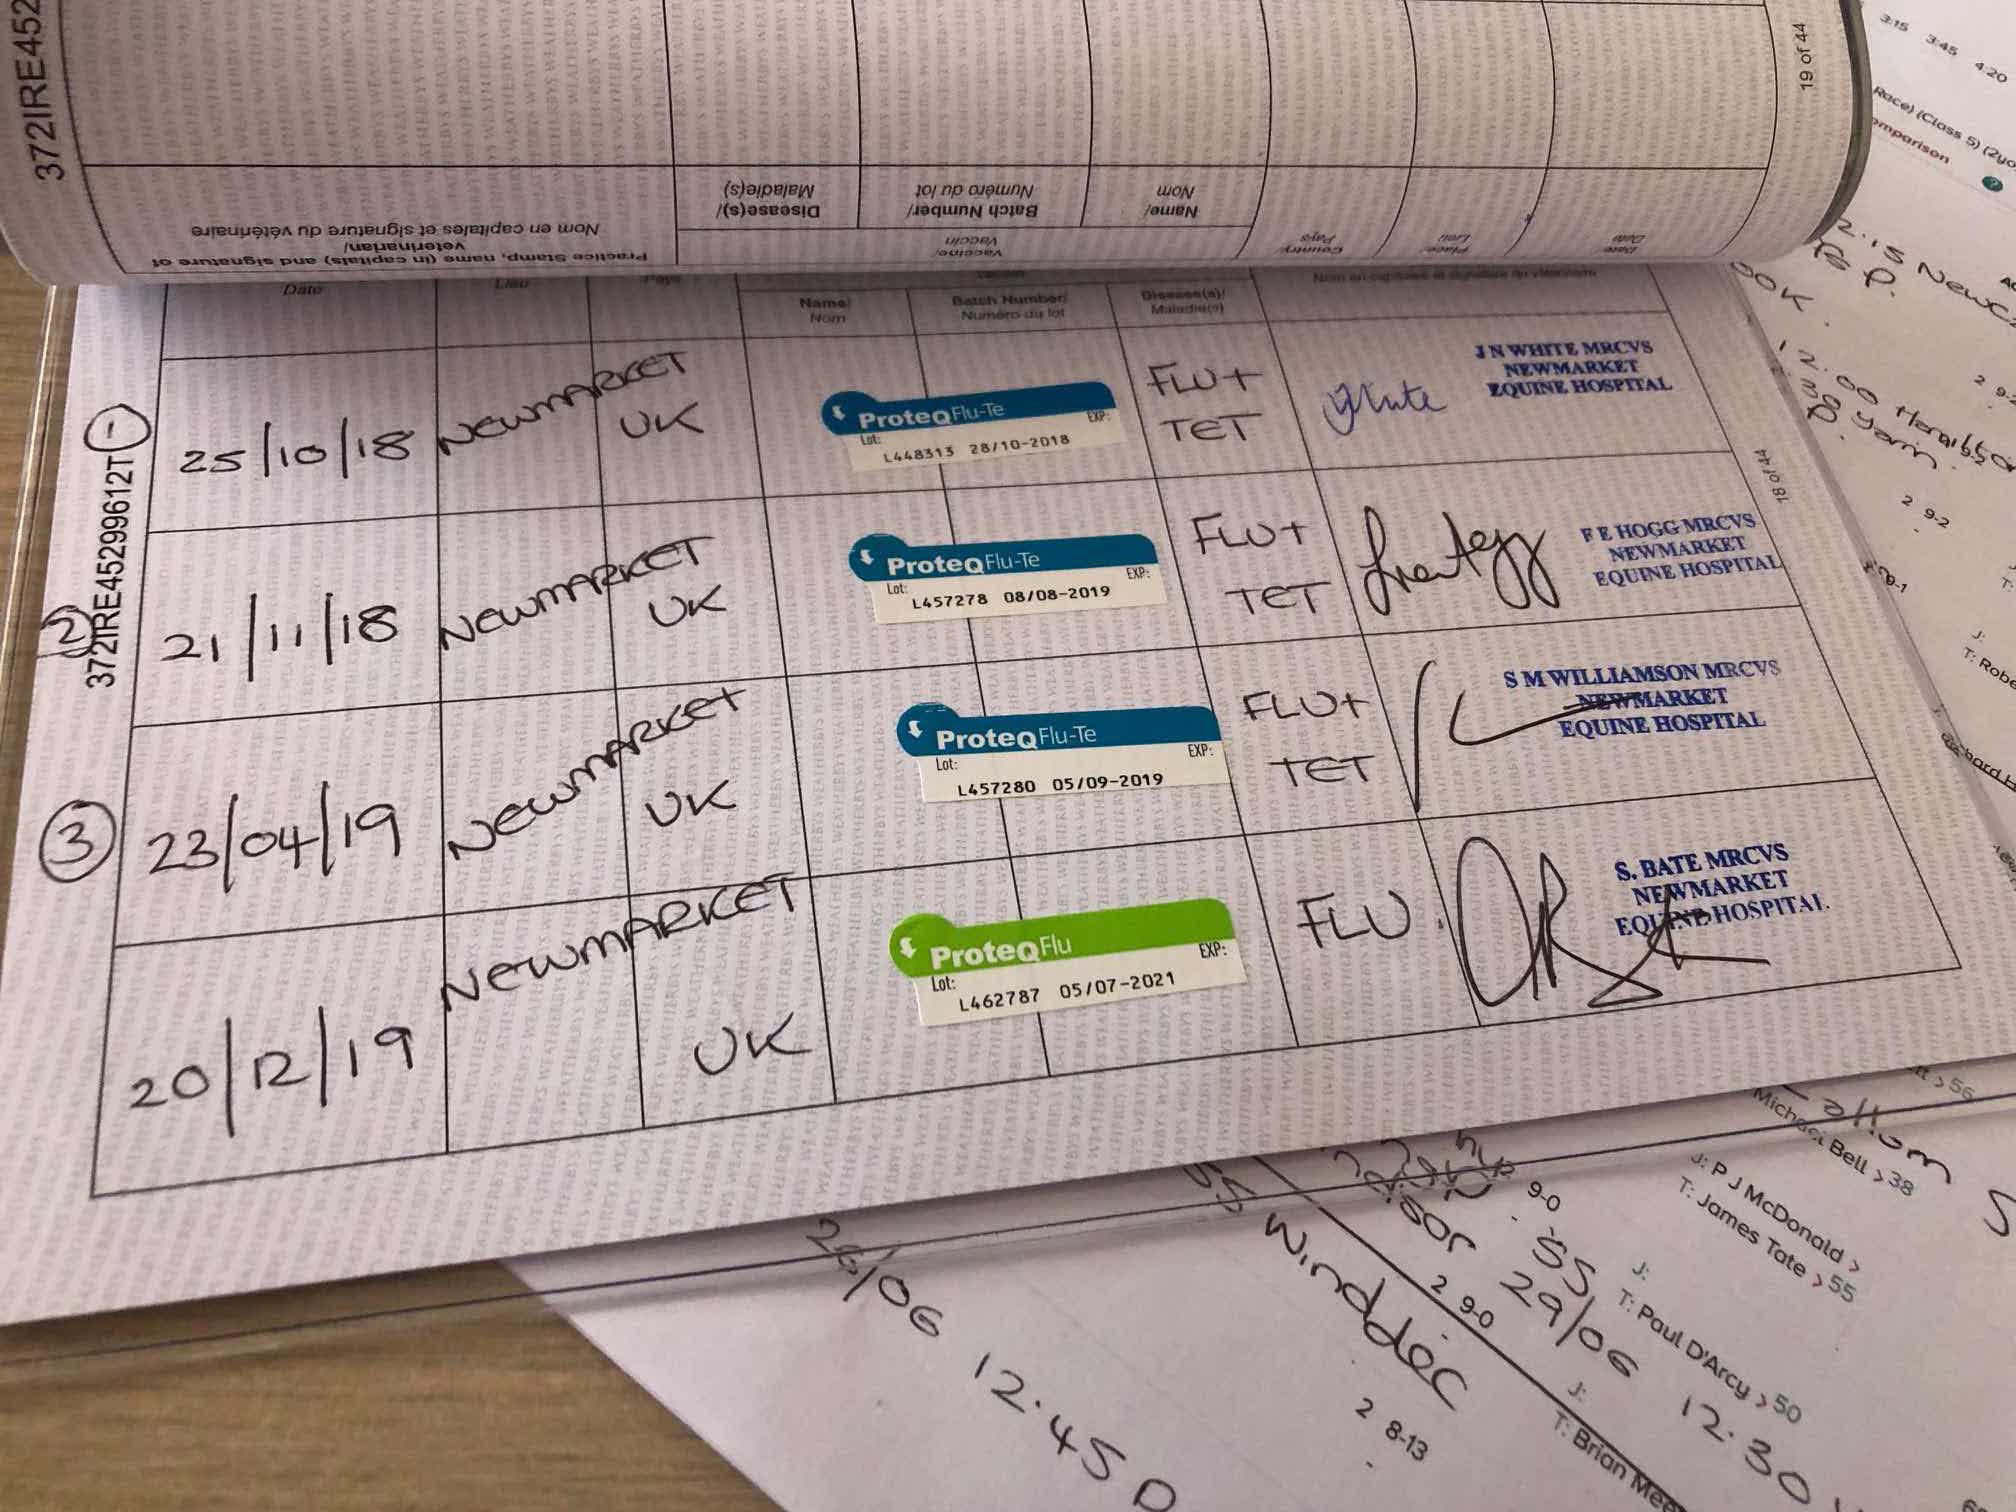 372IRE452
19 of 44
Practice Stamp, name (in capitals) and signature of
veterinarian/
Nom en capitales et signature du vétérinaire
Disease(s)/
Maladie(s)
Vaccine/
Vaccin
Batch Number/
Numéro du lot
Name/
Nom
Country/
Pays
Place/
Lieu
Date
Date
Date
Lieu
Pays
Name/
Nom
Batch Number/
Numéro du lot
Diseases(s)/
Maladie(s)
Nom en capitales et signature du vétérinaire
372IRE452999612T
18 of 44
1
25/10/18
NEWMARKET
UK
ProteqFlu-Te
Lot: EXP:
L448313 28/10-2018
FLU+
TET
White
J N WHITE MRCVS
NEWMARKET
EQUINE HOSPITAL
2
21/11/18
NEWMARKET
UK
ProteqFlu-Te
Lot: EXP:
L457278 08/08-2019
FLU+
TET
F E HOGG MRCVS
NEWMARKET
EQUINE HOSPITAL
3
23/04/19
NEWMARKET
UK
ProteqFlu-Te
Lot: EXP:
L457280 05/09-2019
FLU+
TET
S M WILLIAMSON MRCVS
NEWMARKET
EQUINE HOSPITAL
20/12/19
NEWMARKET
UK
ProteqFlu
Lot: EXP:
L462787 05/07-2021
FLU.
S. BATE MRCVS
NEWMARKET
EQUINE HOSPITAL
3:15 3:45 4:20
Race) (Class 5) (2yo
omparison
?
2 9-2
2 9-2
T: Robe
> 56
Michael Bell > 38
J: P J McDonald >
T: James Tate > 55
J:
T: Paul D'Arcy > 50
J:
T: Brian Mee
9-0
29/06 12.30
2 9-0
Winddoc
2 8-13
26/06 12.45